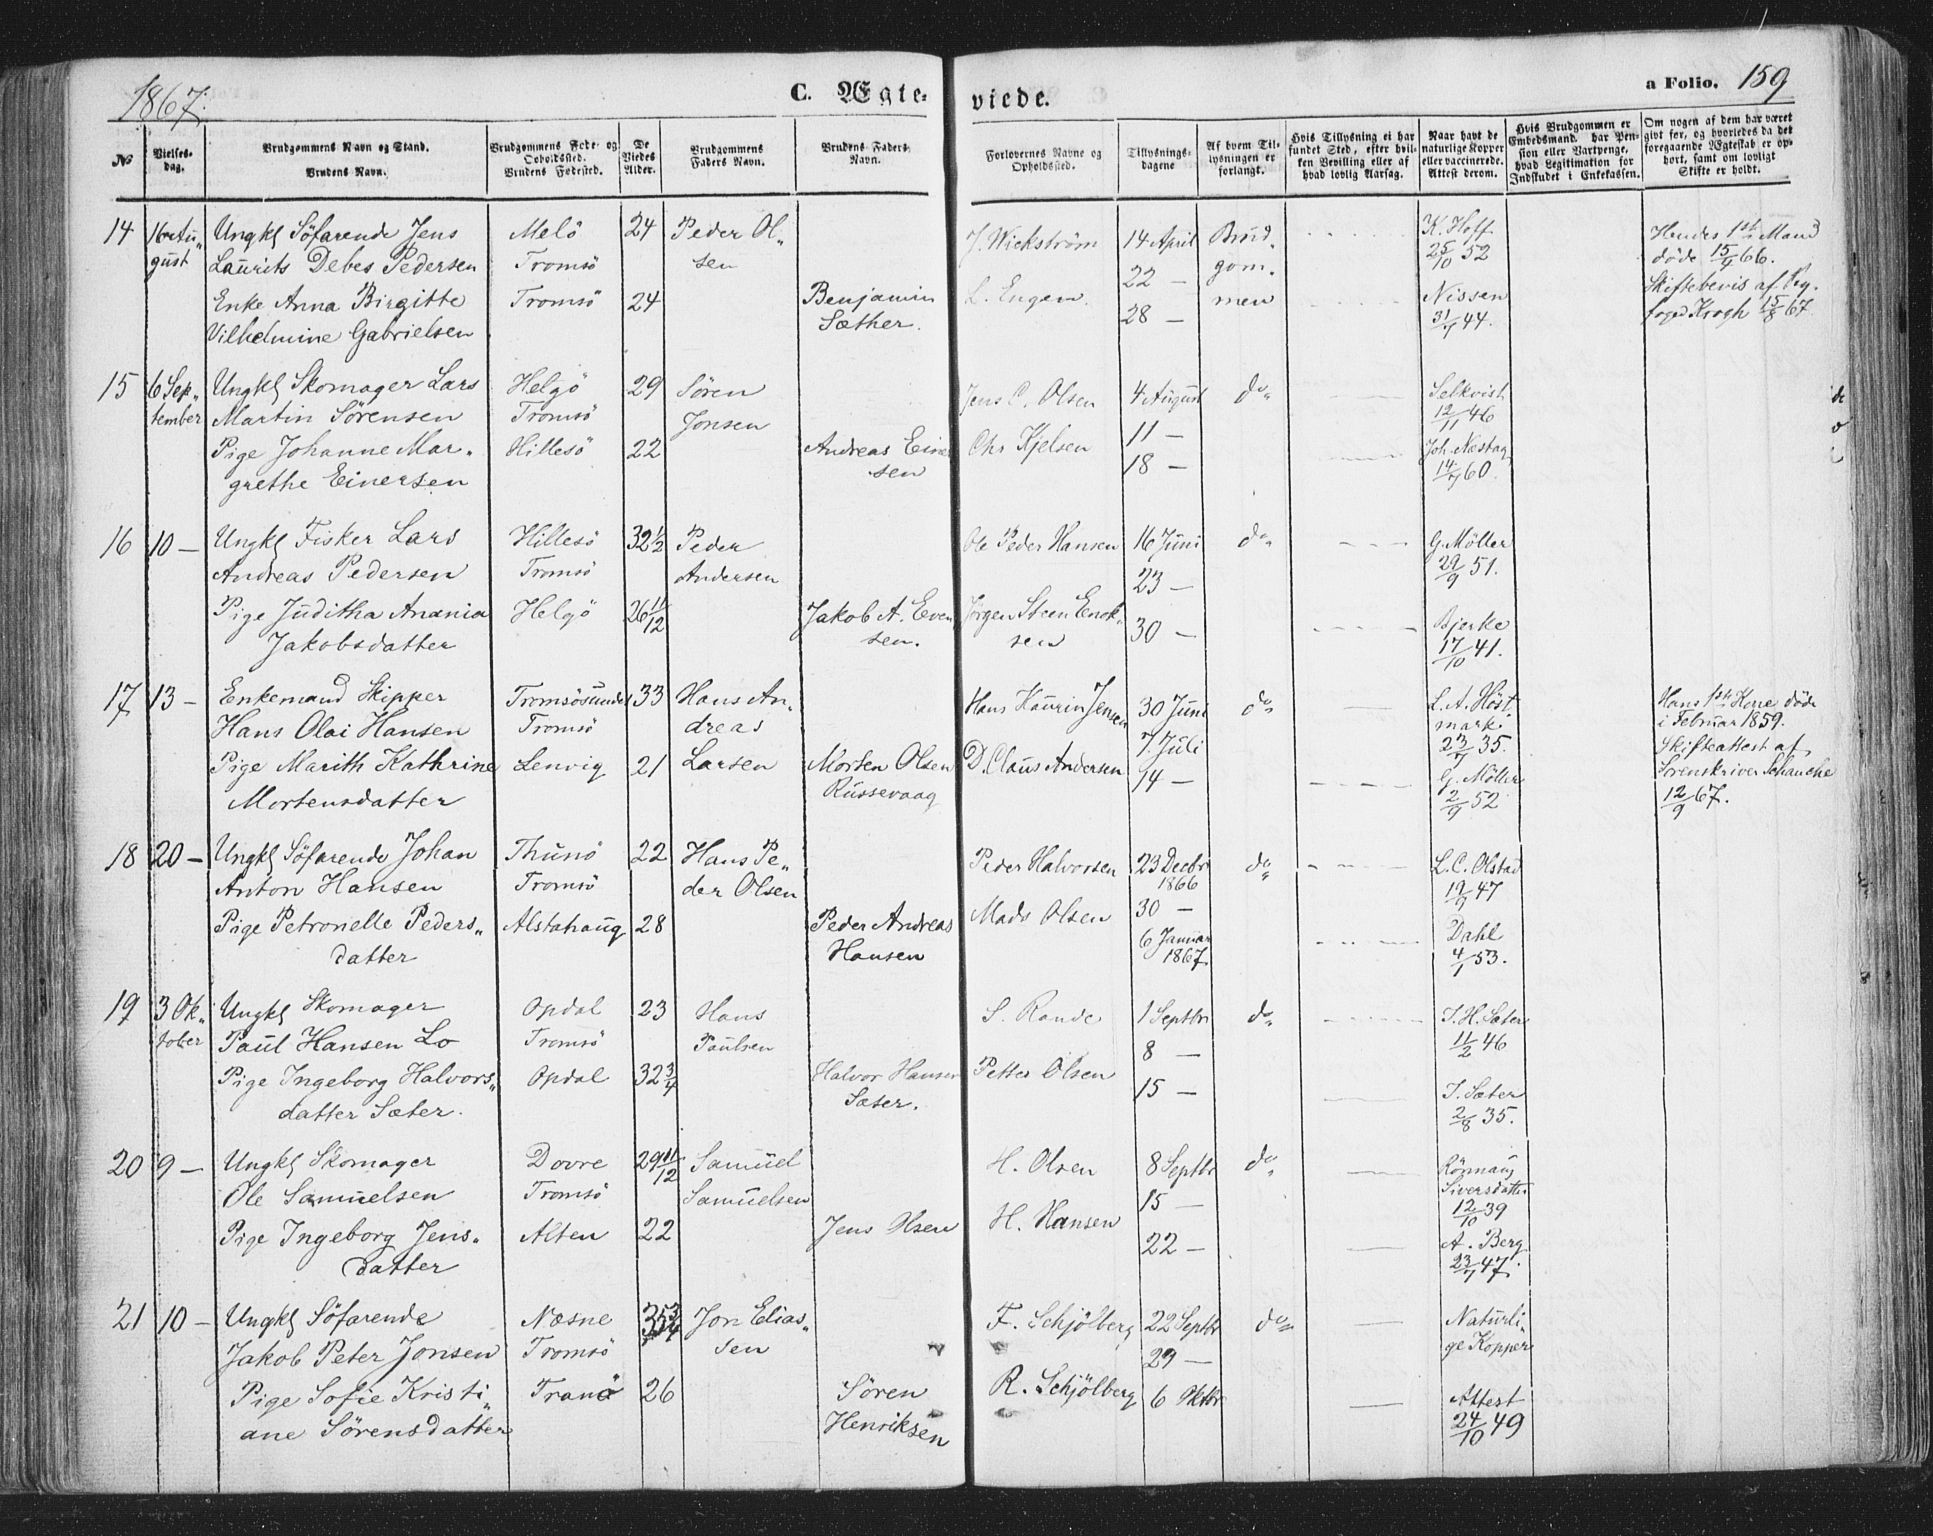 1867.
C. Ægte-
viede.
a Folio. 159
No
Vielses-
dag.
Brudgommens Navn og Stand.
Brudens Navn.
Brudgommens Føde- og
Opholdssted.
Brudens Fødested.
De
Viedes
Alder.
Brudgommens
Faders Navn.
Brudens Faders
Navn.
Forlovernes Navne og
Opholdssted.
Tillysnings-
dagene
Af hvem Til-
lysningen er
forlangt.
Hvis Tillysning ei har
fundet Sted, efter hvil-
ken Bevilling eller af
hvad lovlig Aarsag.
Naar havt de
naturlige Kopper
eller vaccinerede.
Attest derom.
Hvis Brudgommen er
Embedsmand, har Pen-
sion eller Vartpenge,
hvad Legitimation for
Indskudet i Enkekassen.
Om nogen af dem har været
givt før, og hvorledes da det
foregaaende Ægteskab er op-
hørt, samt om lovligt
Skifte er holdt.
14 16 Au- Ungkl Söfarende Jens Melö 24 Peder Ol- J. Wickström 14 April Brud- K. Hoff Hendes 1ste Mand
gust Laurits Debes Pedersen Tromsö sen 22 — gom- 25/10 52 döde 15/4 66.
Enke Anna Birgitte Tromsö 24 Benjamin L. Engen 28 — men Nissen Skiftebevis af By-
Vilhelmine Gabrielsen Sæther. 31/7 44. foged Krogh 15/8 67.
15 6 Sep- Ungkl Skomager Lars Helgö 29 Sören Jens C. Olsen 4 August do Selkvist
tember Martin Sörensen Tromsö Jonsen 11 — 12/11 46
Pige Johanne Mar- Hillesö 22 Andreas Einer Chr Kjelsen 18 — Joh. Næstag
grethe Einersen sen 14/7 60.
16 10 — Ungkl Fisker Lars Hillesö 32 1/2 Peder Ole Peder Hansen 16 Juni do G. Möller
Andreas Pedersen Tromsö Andersen 23 — 29/9 51.
Pige Juditha Anania Helgö 26 11/12 Jakob A. Even Jörgen Steen Enok- 30 — Bjerke
Jakobsdatter sen. sen 17/10 41.
17 13 — Enkemand Skipper Tromsösundet 33 Hans An- Hans Kaurin Jensen 30 Juni do L. A. Höst Hans 1ste Kone döde
Hans Olai Hansen Tromsö dreas 7 Juli mark i Februar 1859.
23/7 35. Skifteattest af
Pige Marith Kathrine Lenvig 21 Larsen Morten Olsen D. Claus Andersen 14 — G. Möller Sorenskriver Schanche
Mortensdatter Russevaag 2/9 52 12/9 67.
18 20 — Ungkl Söfarende Johan Thunö 22 Hans Pe- Peder Halvorsen 23 Decbr 1866 do L. C. Olstad
Anton Hansen Tromsö der Olsen 30 — 19/9 47
Pige Petronelle Peders- Alstahaug 28 Peder Andreas Mads Olsen 6 Januar Dahl
datter Hansen 1867. 4/1 53.
19 3 Ok- Ungkl Skomager Opdal 23 Hans S. Rande 1 Septbr do J. H. Sæter
tober Paul Hansen Lo Tromsö Paulsen 8 — 11/2 46
Pige Ingeborg Halvors- Opdal 32 3/4 Halvor Hansen Petter Olsen 15 — J. Sæter
datter Sæter. Sæter. 2/8 35.
20 9 — Ungkl Skomager Dovre 29 11/12 Samuel H. Olsen 8 Septbr do Rönnaug
Ole Samuelsen Tromsö Samuelsen 15 — Siversdatter
12/10 39
Pige Ingeborg Jens- Alten 22 Jens Olsen H. Hansen 22 — A. Berg
datter 23/7 47.
21 10 — Ungkl Söfarende Næsne 35 3/4 Jon Elias- F. Schjölberg 22 Septbr do Naturli-
Jakob Peter Jonsen Tromsö sen 29 — ge Kopper
Pige Sofie Kristi- Tranö 26 Sören R. Schjölberg 6 Oktbr Attest
ane Sörensdatter Henriksen 24/10 49